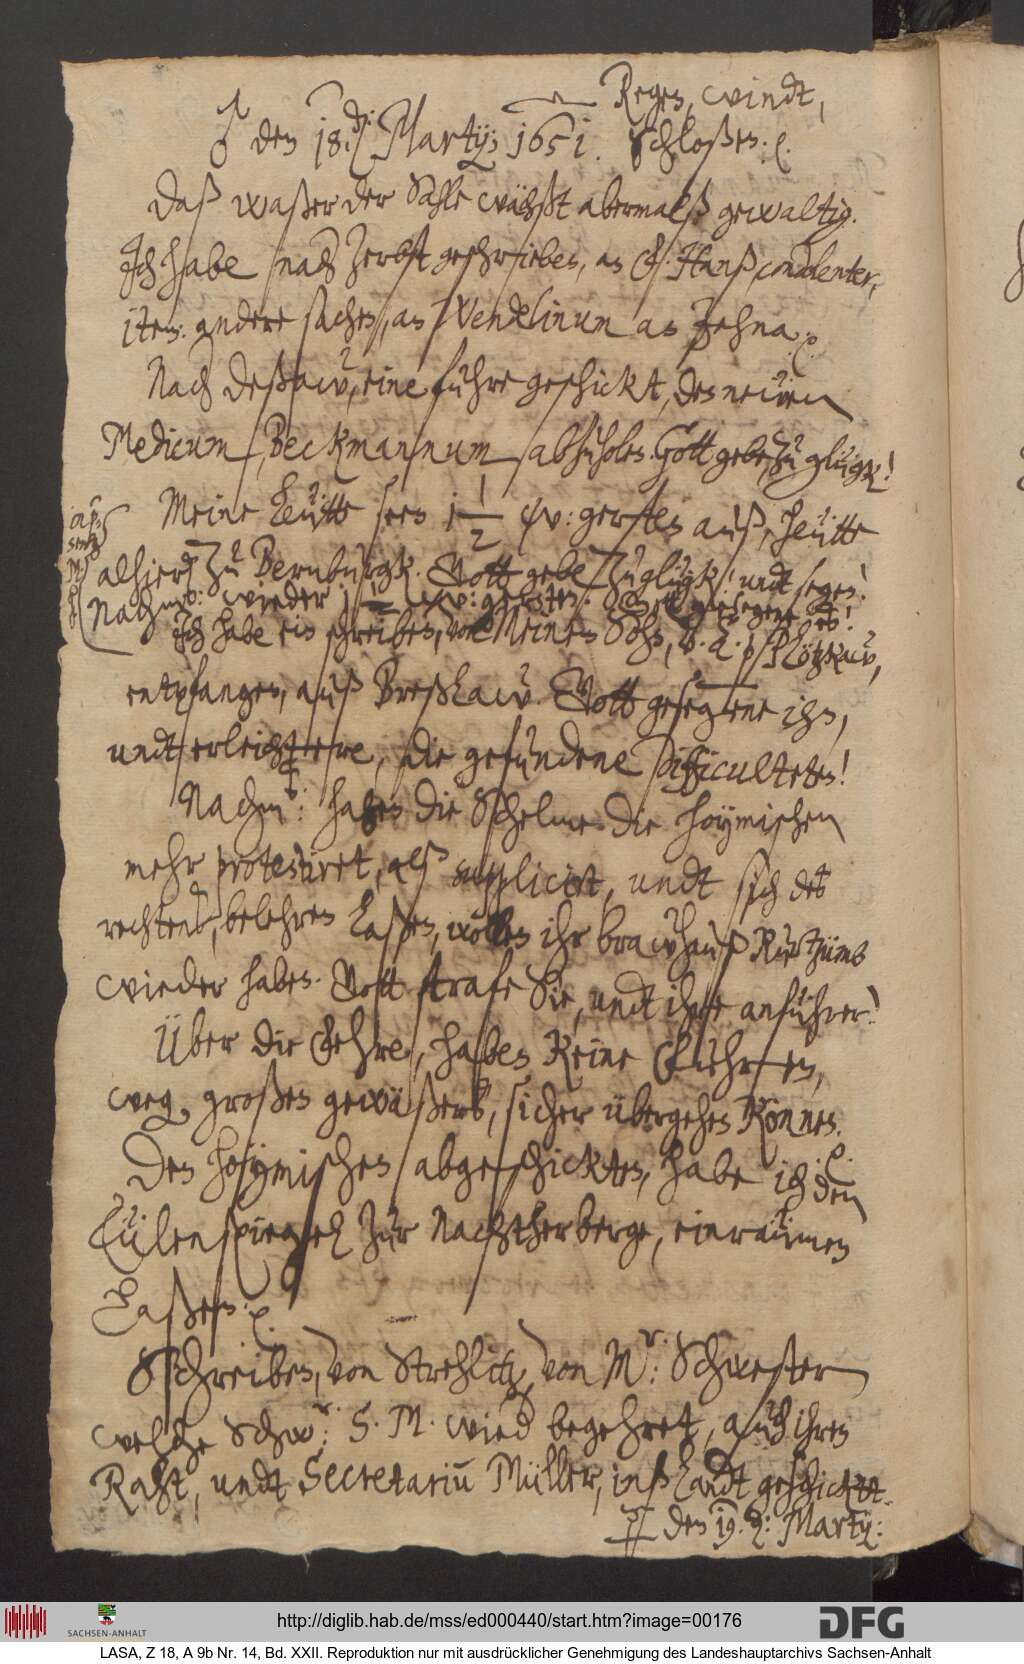 Regen, windt,
♂ den 18. Martij; 1651. Schloßen. ⁊c.
Daß waßer der Sahle wächst abermalß gewaltig.
Ich habe nach Zerbst geschrieben, an Hanß
item: andere sachen, an Wendelinum an Jehna. ⁊c.
Nach Deßaw, eine fuhre geschickt, den neẅen
Medicum, Beckmannum, abzuholen. Gott gebe zu glügk!
Meine Leütte seen 1 1/2 w: gersten auß, heütte
alhier zu Bernburgk. Gott gebe zu glügk! undt segen!
Nachm: wieder 1 1/2 w: gersten. Gott gesegene es!
Ich habe ein schreiben, von Meinem Sohn, v. a. Plötzkaw,
entpfangen, auß Breßlaw. Gott gesegene ihn,
undt erleichtere, die gefundene Difficulteten!
Nachm: haben die Schelme die Hoymischen
mehr protestiret, alß suppliciret, undt sich des
rechtens, belehren laßen, wollen ihr brawhauß kurtzümb
wieder haben. Gott strafe Sie, undt ihre anführer!
Über die Fehre, haben keine Fuhren,
weg. großen gewäßers, sicher übergehen können. ⁊c.
Den Hoymischen abgeschickten, habe ich den
Eülenspiegel zur Nachtherberge, einraümen
Laßen. ⁊c.
Schreiben, von Strehlitz, von Mr: Schwester
welche Schwr: S. M. wird begehret, auch ihren
Raht, undt Secretarium Müller, inß Landt geschickt.
♃ den 19. Martij:
http://diglib.hab.de/mss/ed000440/start.htm?image=00176
SACHSEN-ANHALT
DFG
LASA, Z 18, A 9b Nr. 14, Bd. XXII. Reproduktion nur mit ausdrücklicher Genehmigung des Landeshauptarchivs Sachsen-Anhalt